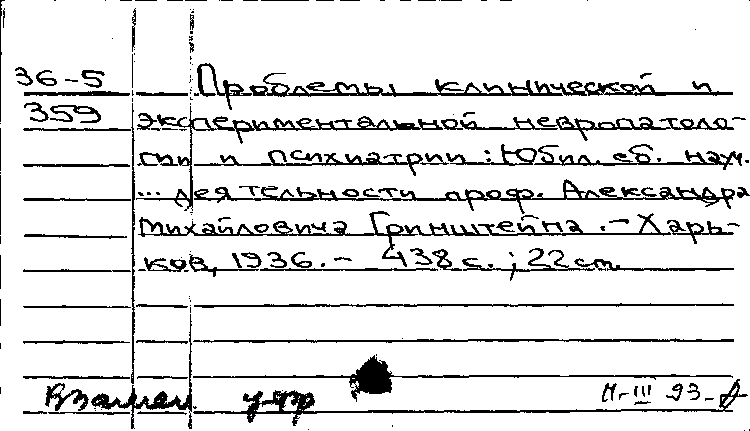 36-5 Проблемы клинической и
359 экспериментальной невропатоло-
гии и психиатрии : Юбил. сб. науч.
... деятельности проф. Александра
Михайловича Гринштейна. - Харь-
ков, 1936. - 438 с. ; 22 см.
Взамен утр
И-III 93-